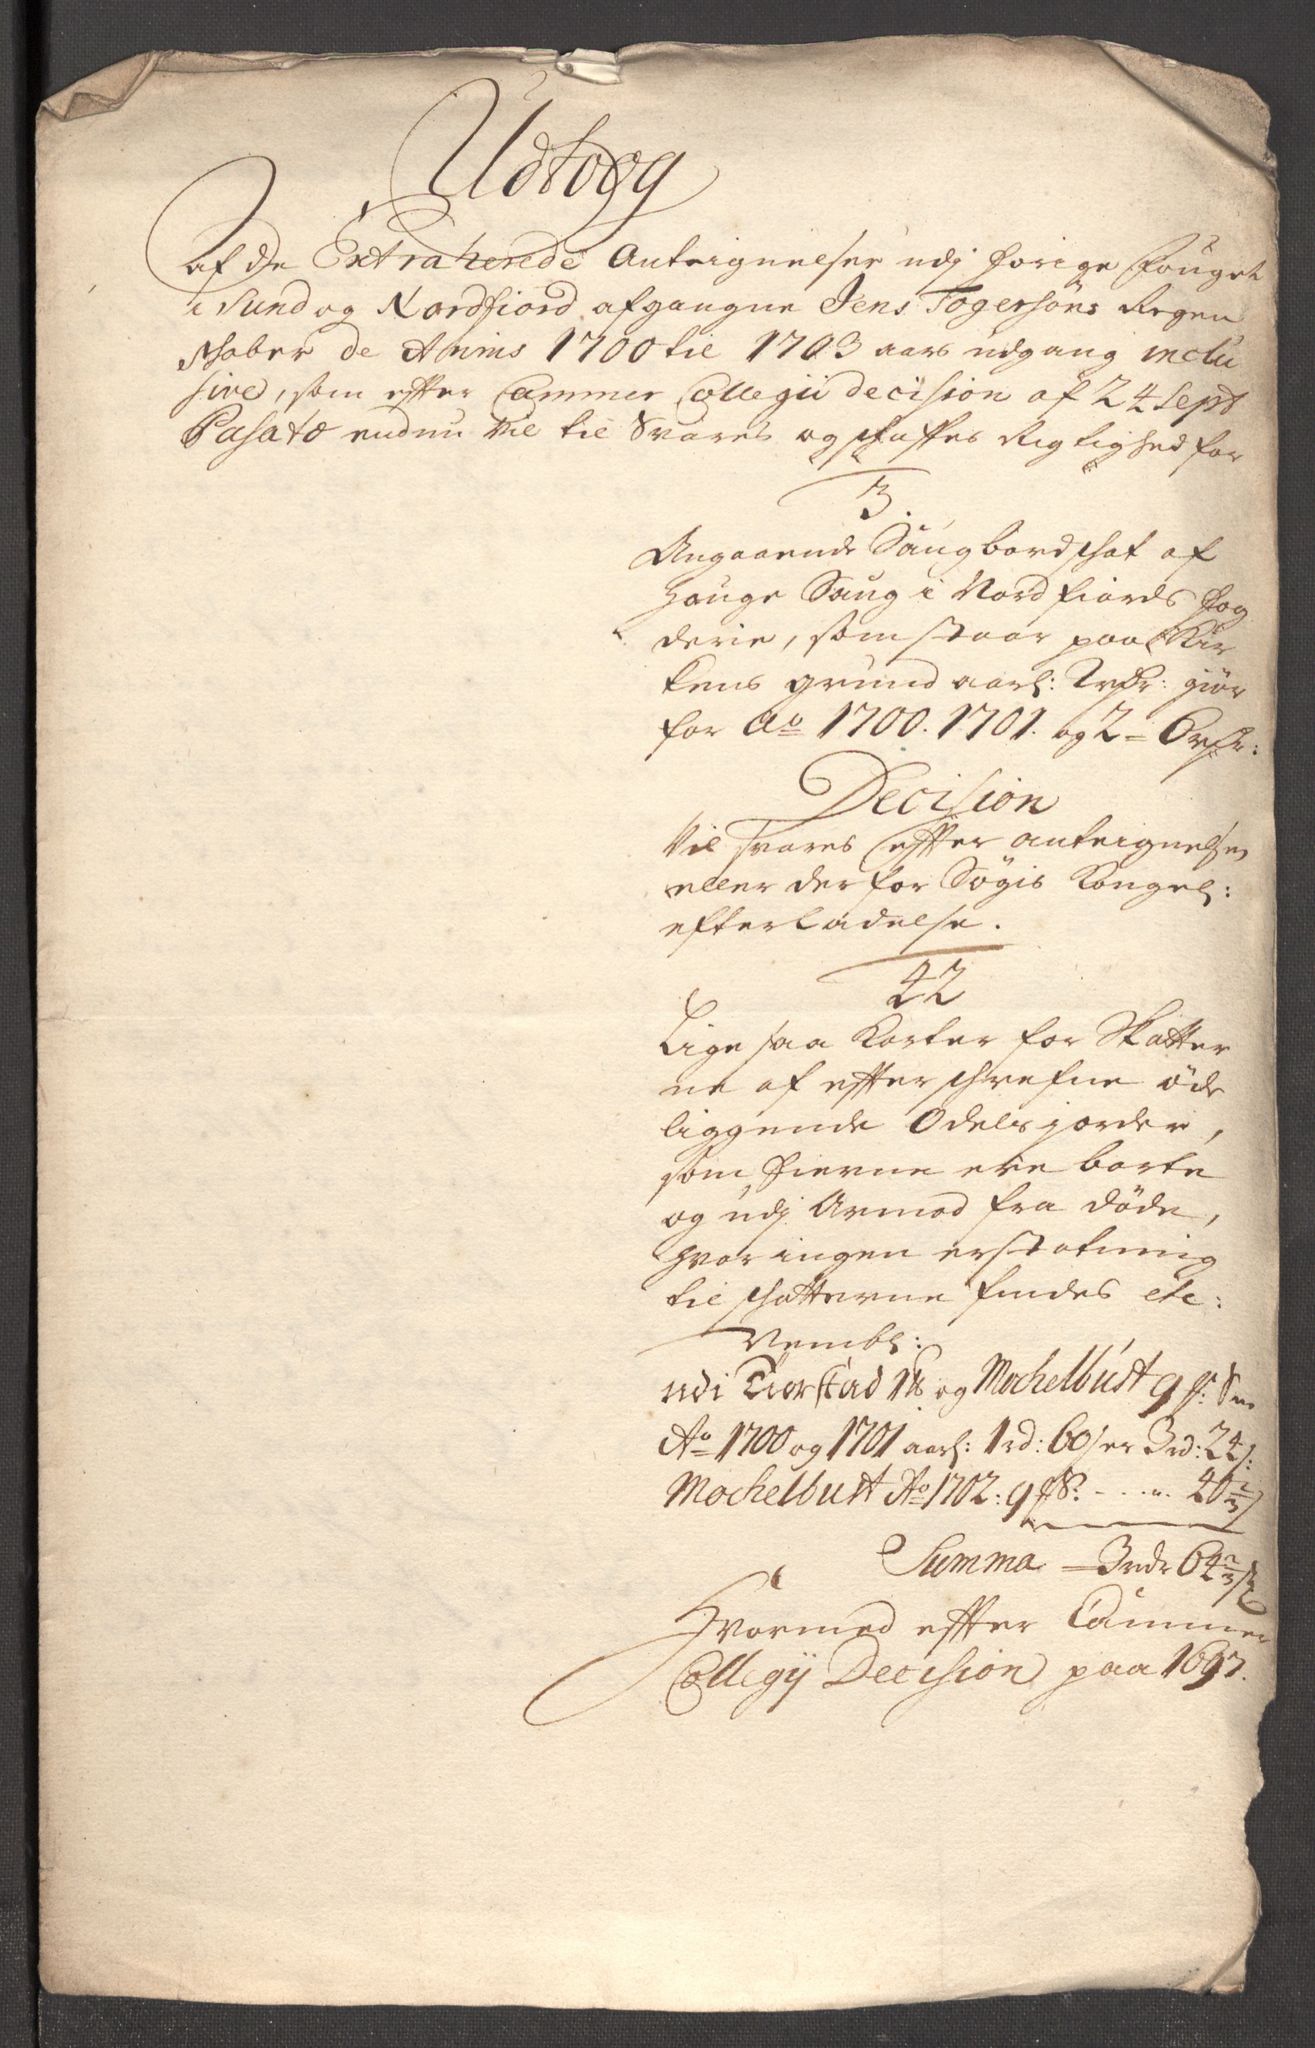 Udtoog
af de Extraherede Anteignelser udj forige Fouget
i Sund og Nordfiord afgangne Jens Togersøns Regen
skaber de Annis 1700 til 1703 aars udgang inclu
sive, som effter Cammer Collegii decision af 24 Sept
Pasato endnu vil til Svares og skaffes Rigtighed for
3.
Angaaende Saugbordskat af
Houge Saug i Nordfiords fog
derie, som staar paa Kir
kens grund aarl: giør
for Ao 1700. 1701. og 2 =
Decision
Vil svares effter anteignelsen
eller derfor Søgis Kongel:
efterladelse.
42
Lige saa Korter for Skatter
ne af effterskrefne øde
liggende Odelsjorder,
som Eierne ere borte
og udj Armod fra døde,
hvor ingen erstatning
til skatterne findes etc:
Nembl:
udi og Mochelbust 9
Ao 1700 og 1701 aarl: 1 rd: 60 s er 3 rd: 24 s:
Mochelbust Ao 1702: 9 - - - " 40 2/3 s
Summa = 3 rdr 64 2/3 s
Hvormed effter Cammer
Collegij Decision paa 1697.